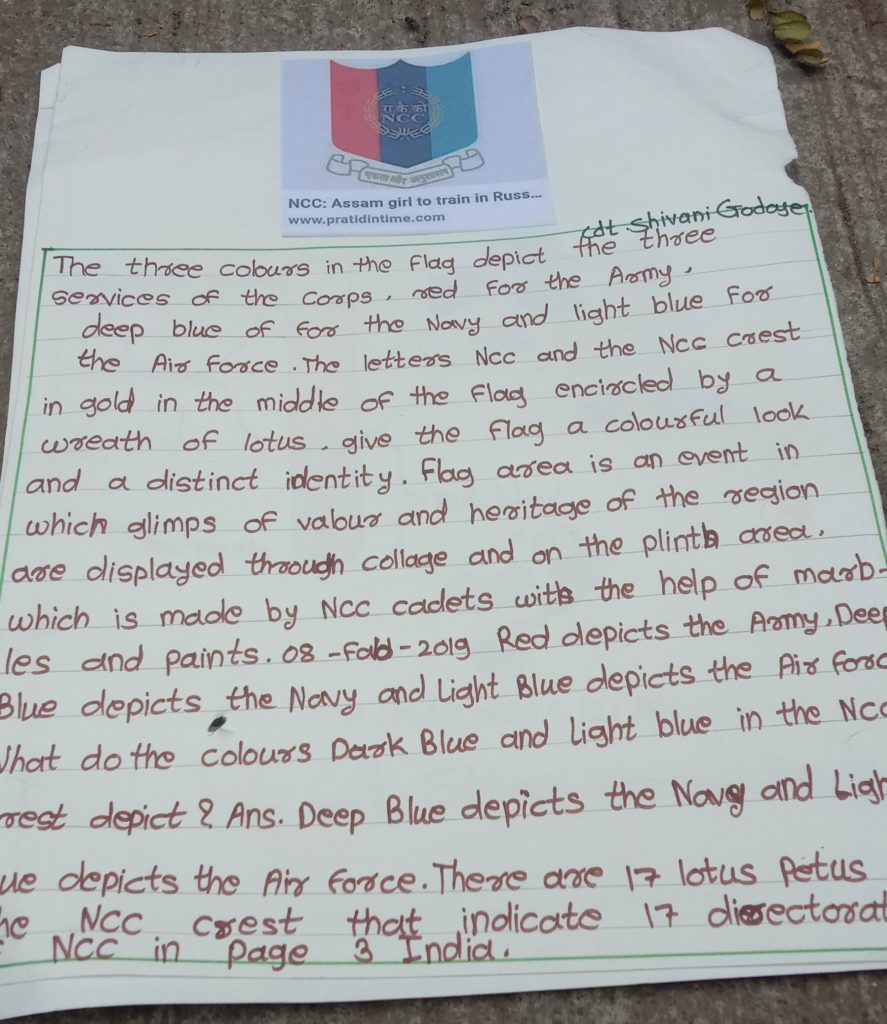 रा.कै.को
NCC
एकता और अनुशासन
NCC: Assam girl to train in Russ...
www.pratidintime.com
cdt. Shivani Godase.
The three colours in the flag depict the three
services of the Corps, red for the Army,
deep blue of for the Navy and light blue for
the Air force. The letters Ncc and the Ncc crest
in gold in the middle of the flag encircled by a
wreath of lotus. give the flag a colourful look
and a distinct identity. Flag area is an event in
which glimps of valour and heritage of the region
are displayed through collage and on the plinth area.
which is made by NCC cadets with the help of marb-
les and paints. 08-Feb-2019 Red depicts the Army, Deep
Blue depicts the Navy and Light Blue depicts the Air forc
What do the colours Dark Blue and Light blue in the NCC
rest depict? Ans. Deep Blue depicts the Navy and Ligh
ue depicts the Air force. There are 17 lotus Petus
he NCC crest that indicate 17 directorat
NCC in Page 3 India.